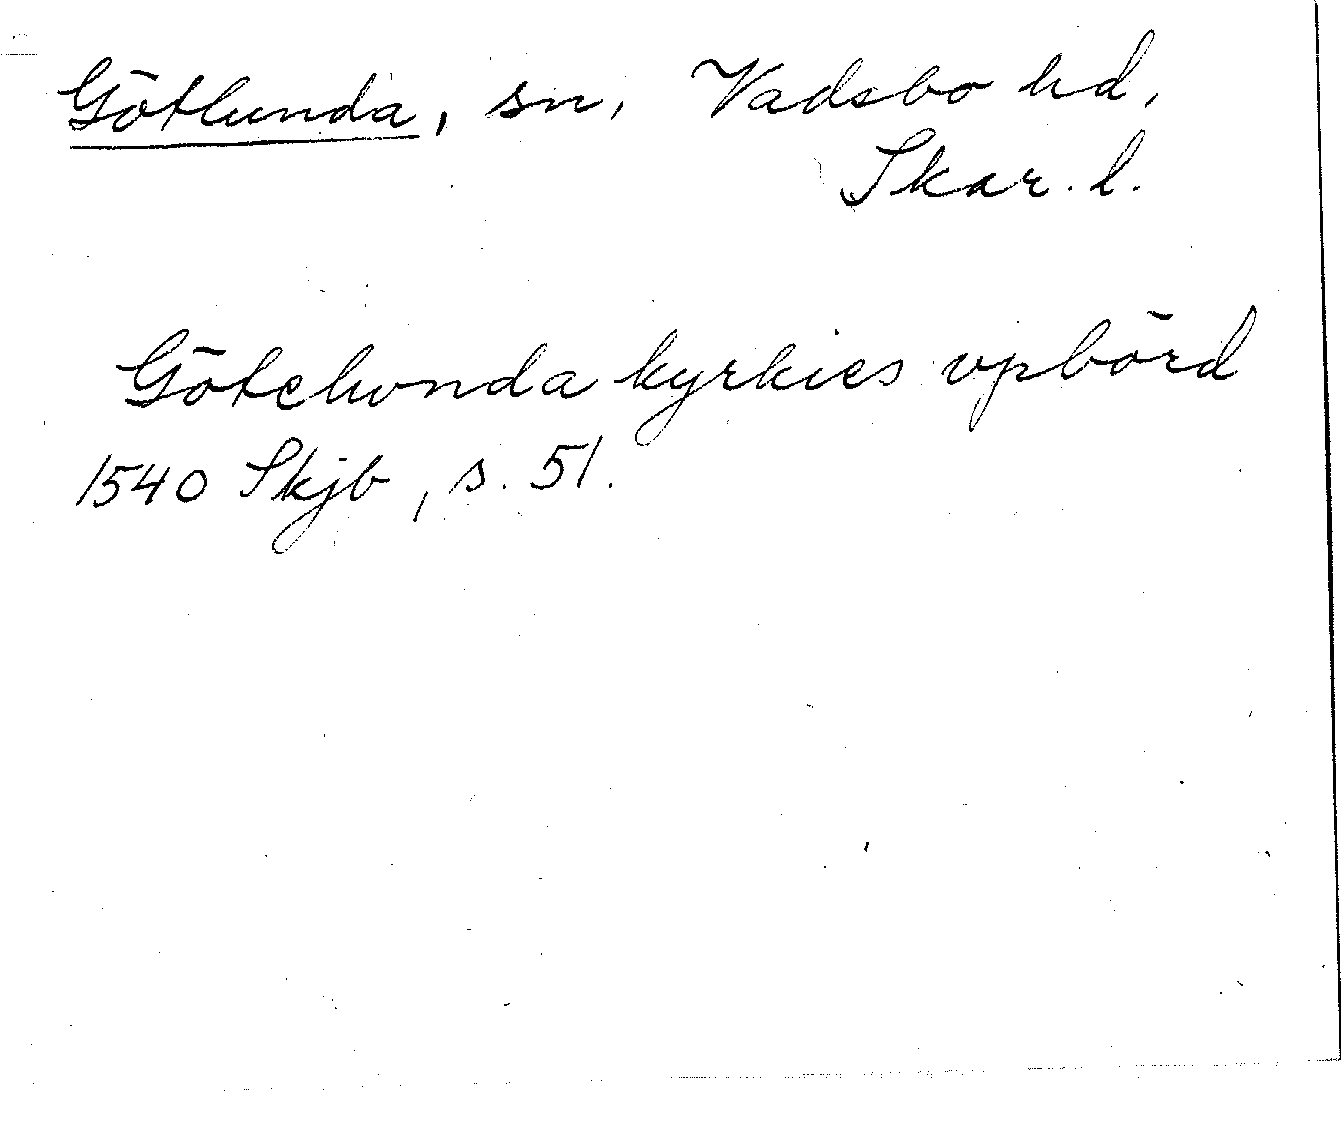 Götlunda, sn, Vadsbo hd,
Skar. l.
Götelvnda kyrkies vpbörd
1540 Skjb, s. 51.